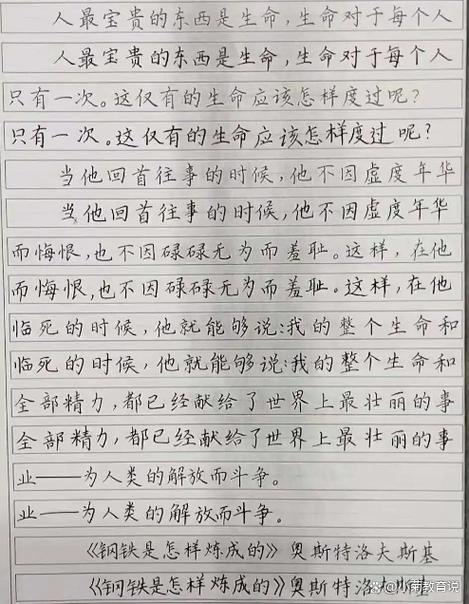 人最宝贵的东西是生命，生命对于每个人
人最宝贵的东西是生命，生命对于每个人
只有一次。这仅有的生命应该怎样度过呢？
只有一次。这仅有的生命应该怎样度过呢？
当他回首往事的时候，他不因虚度年华
当他回首往事的时候，他不因虚度年华
而悔恨，也不因碌碌无为而羞耻。这样，在他
而悔恨，也不因碌碌无为而羞耻。这样，在他
临死的时候，他就能够说：我的整个生命和
临死的时候，他就能够说：我的整个生命和
全部精力，都已经献给了世界上最壮丽的事
全部精力，都已经献给了世界上最壮丽的事
业——为人类的解放而斗争。
业——为人类的解放而斗争。
《钢铁是怎样炼成的》奥斯特洛夫斯基
《钢铁是怎样炼成的》奥斯特洛夫斯基